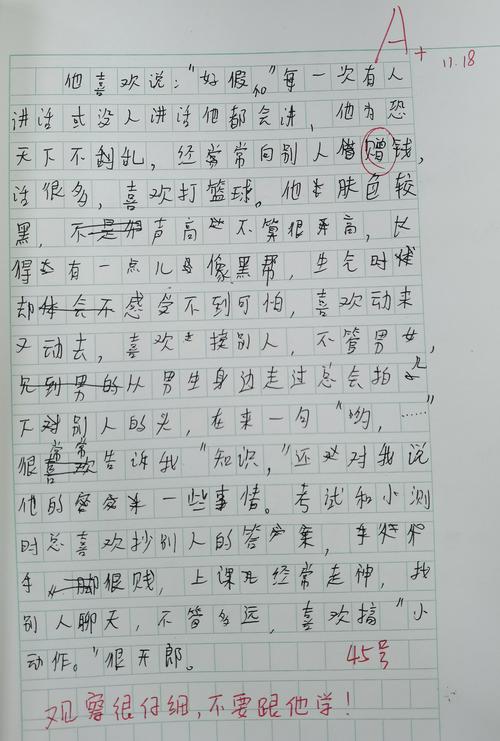 A+
11.18
他喜欢说:“好假和”每一次有人
讲话或没人讲话他都会讲,他为恐
天下不乱,经常常向别人借赠钱,
话很多,喜欢打篮球。他皮肤色较
黑,不是身高不算很高,长
得有一点儿像黑帮,生气时
却感受不到可怕,喜欢动来
又动去,喜欢接别人,不管男女,
从男生身边走过总会拍几
下对别人的头,在来一句“哟,……”
很常常告诉我“知识,”还对我说
他的一些事情。考试和小测
时总喜欢抄别人的答案,手
手很贱,上课经常走神,找
别人聊天,不管多远,喜欢搞“小
动作。”很开郎。
45号
观察很仔细,不要跟他学!